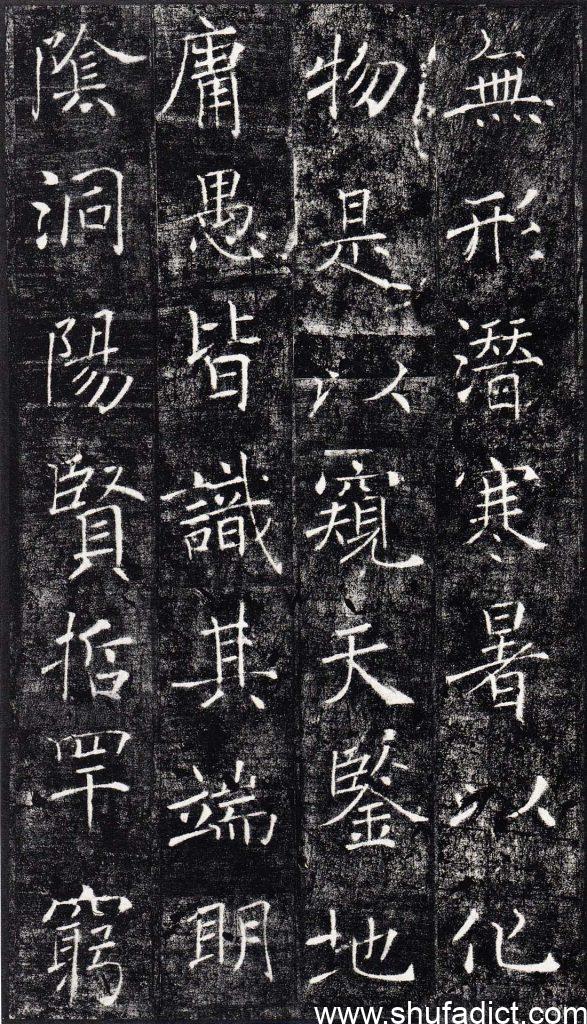 無形潛寒暑以化
物是以窺天鑒地
庸愚皆識其端明
陰洞陽賢哲罕窮
www.shufadict.com